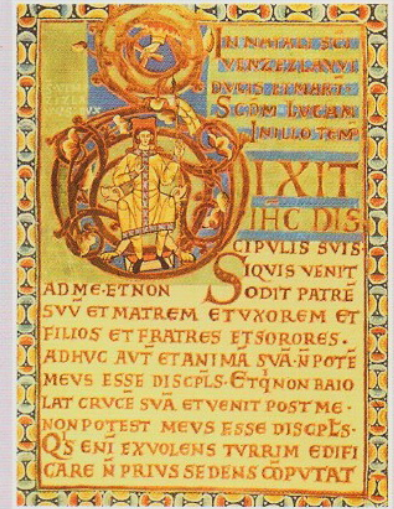 IN NATALI SCI
VENZEZLAVVI
DVCIS ET MART
SCDM LVCAM
IN ILLO TEMP
DIXIT
IHC DIS
CIPVLIS SVIS
SIQVIS VENIT
AD ME·ET NON ODIT PATRĒ
SVV̄ ET MATREM ET VXOREM ET
FILIOS ET FRATRES ET SORORES·
ADHVC AVT̄ ET ANIMĀ SVĀ·N̄ POTE
MEVS ESSE DISCPLS·ETQ̄ NON BAIO
LAT CRVCĒ SVĀ ET VENIT POST ME·
NON POTEST MEVS ESSE DISCPLS·
QS ENI EX VOLENS TVRRIM EDIFI
CARE N̄ PRIVS SEDENS CŌPVTAT